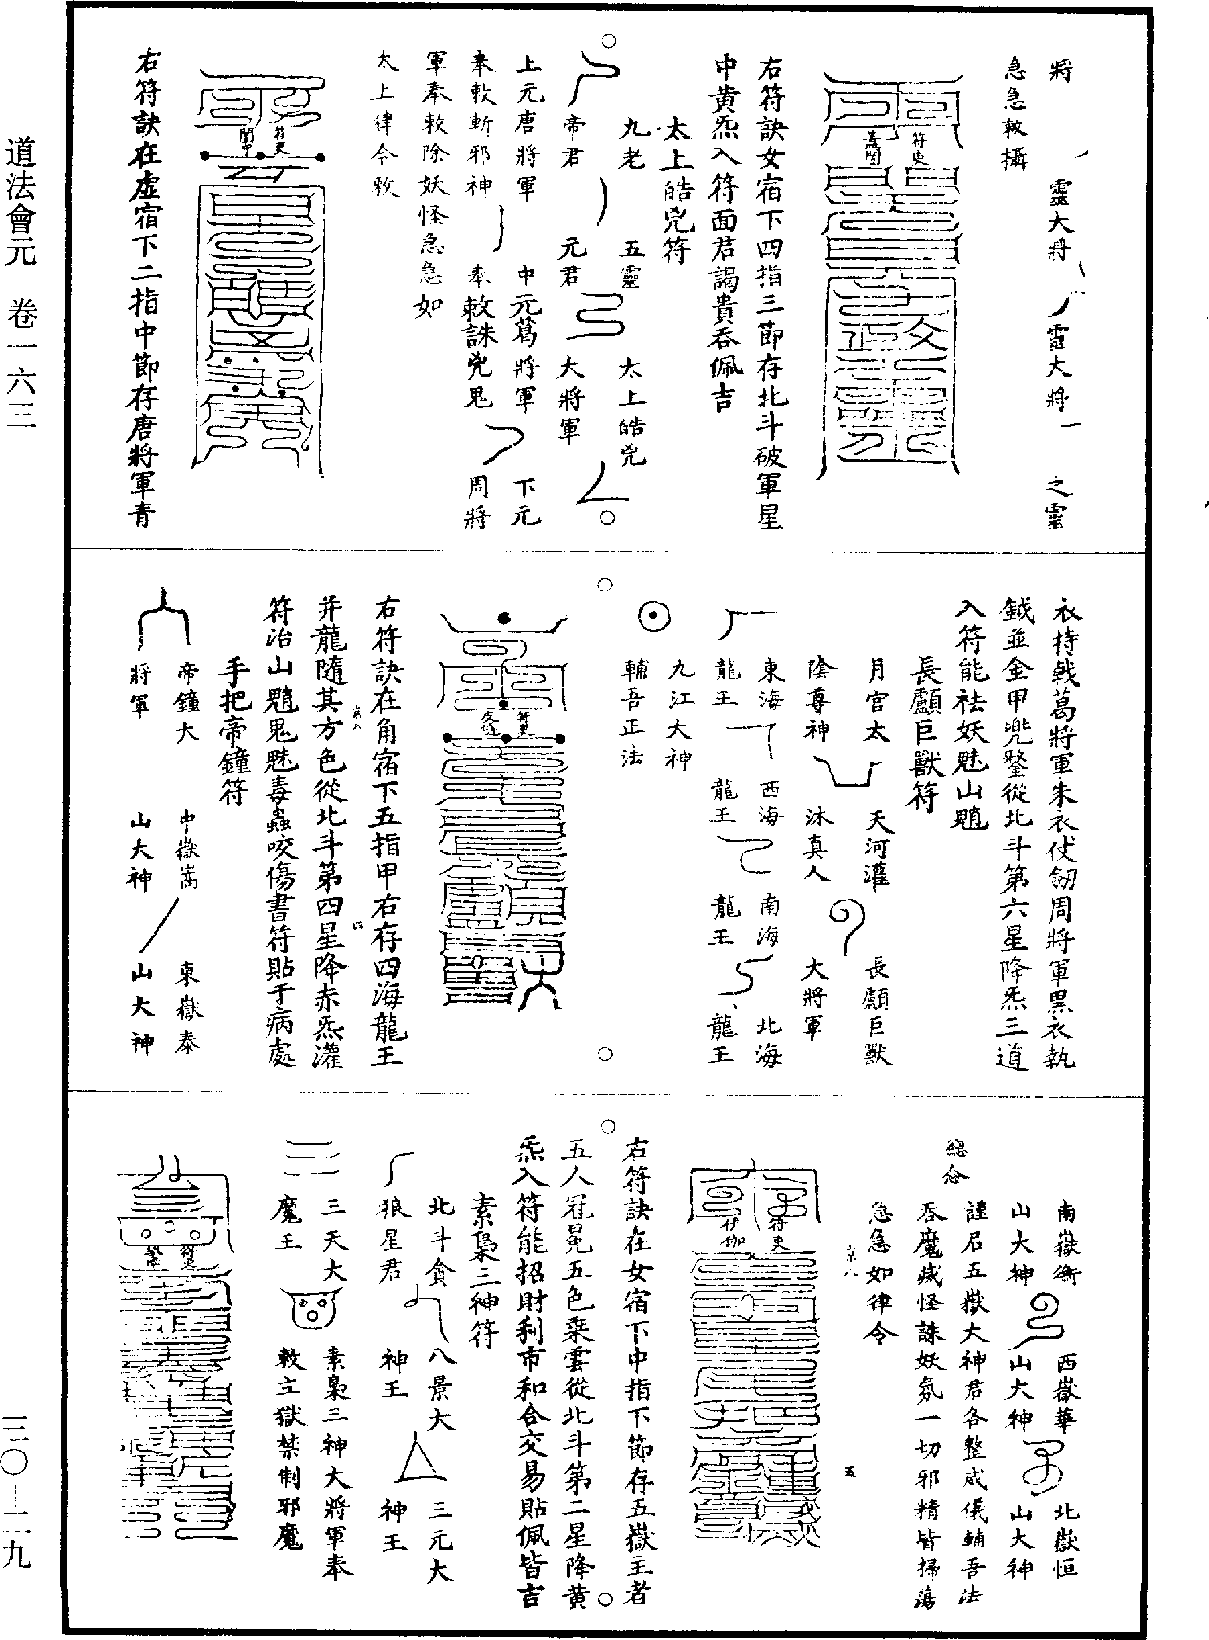 道法會元　卷一六三
三〇—二九
將　靈大將　雷大將　之靈
急急敕攝
符吏
右符訣女宿下四指三節存北斗破軍星
中黃炁入符面君謁貴吞佩吉
太上皓兇符
九老　五靈　太上皓兇
帝君　元君　大將軍
上元唐將軍　中元葛將軍　下元
奉敕斬邪神　奉敕誅兇鬼　周將
軍奉敕除妖怪急急如
太上律令敕
符吏
右符訣在虛宿下二指中節存唐將軍青
衣持戟葛將軍朱衣仗劒周將軍黑衣執
鉞並金甲兜鍪從北斗第六星降炁三道
入符能祛妖魅山魈
長顱巨獸符
月宮太　天河灌　長顱巨獸
陰尊神　沐真人　大將軍
東海　西海　南海　北海
龍王　龍王　龍王　龍王
九江大神
輔吾正法
符吏
右符訣在角宿下五指甲右存四海龍王
并龍隨其方色從北斗第四星降赤炁灌
符治山魈鬼魅毒蟲咬傷書符貼于病處
手把帝鐘符
帝鐘大　中嶽嵩　東嶽泰
將軍　山大神　山大神
南嶽衡　西嶽華　北嶽恒
山大神　山大神　山大神
總念
謹召五嶽大神君各整威儀輔吾法
吞魔滅怪誅妖氛一切邪精皆掃蕩
急急如律令
京八　五
符吏
右符訣在女宿下中指下節存五嶽主者
五人冠冕五色乘雲從北斗第二星降黃
炁入符能招財利市和合交易貼佩皆吉
素梟三神符
北斗貪　八景大　三元大
狼星君　神王　神王
三天大　素梟三神大將軍奉
魔王　敕立獄禁制邪魔